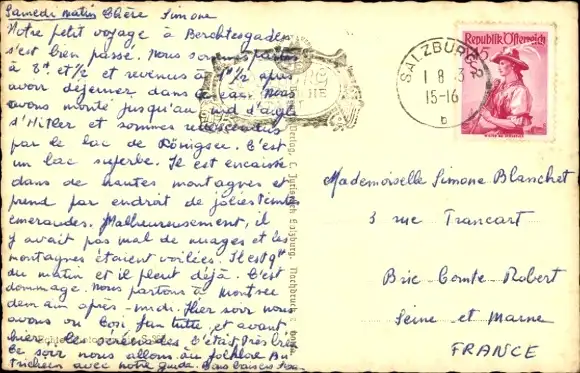 Samedi matin Chère Simone
Notre petit voyage à Berchtesgaden
s'est bien passé. Nous sommes partis
à 8h et 1/2 et revenus à 7h 1/2 après
avoir déjeuner dans le car. Nous
avons monté jusqu'au nid d'aigle
d'Hitler et sommes redescendus
par le lac de Königsee. C'est
un lac superbe. Il est encaissé
dans de hautes montagnes et
prend par endroit de jolies teintes
émeraudes. Malheureusement, il
y avait pas mal de nuages et les
montagnes étaient voilées. Il est 9h
du matin et il pleut déjà. C'est
dommage. Nous partons à
demain après-midi. Hier soir nous
avons vu Cosi fan tutte, et avant
hier les sérénades. C'était très
Ce soir nous allons au folklore Au
trichien avec notre guide. Bons baisers
SALZBURG 2
1 8 3
15-16
b
Republik Österreich
Mademoiselle Simone Blanchet
3 rue Trancart
Brie Comte Robert
Seine et Marne
FRANCE
Verlag C. Jurischek, Salzburg. Nachdruck